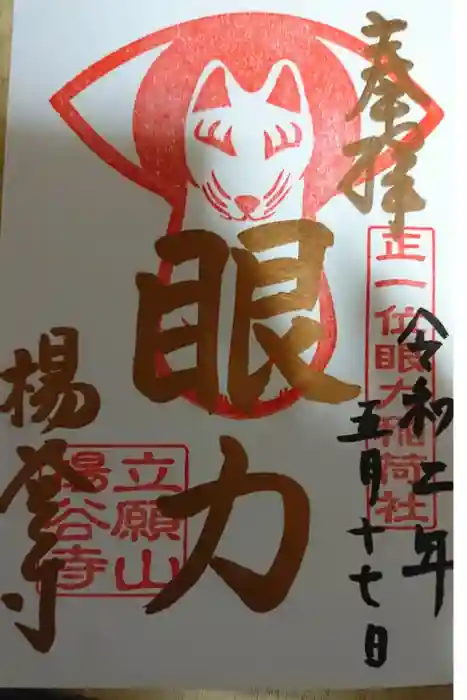 奉拝
正一位眼力稲荷社
令和二年
五月十七日
眼力
立願山
楊谷寺
楊谷寺